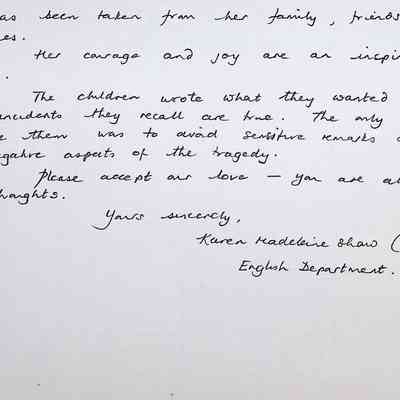 as been taken from her family, friends
es.
Her courage and joy are an inspi
.
The children wrote what they wanted
incidents they recall are true. The only
e them was to avoid sensitive remarks
egative aspects of the tragedy.
Please accept our love — you are al
houghts.
Yours sincerely,
Karen Madeleine Shaw (
English Department.